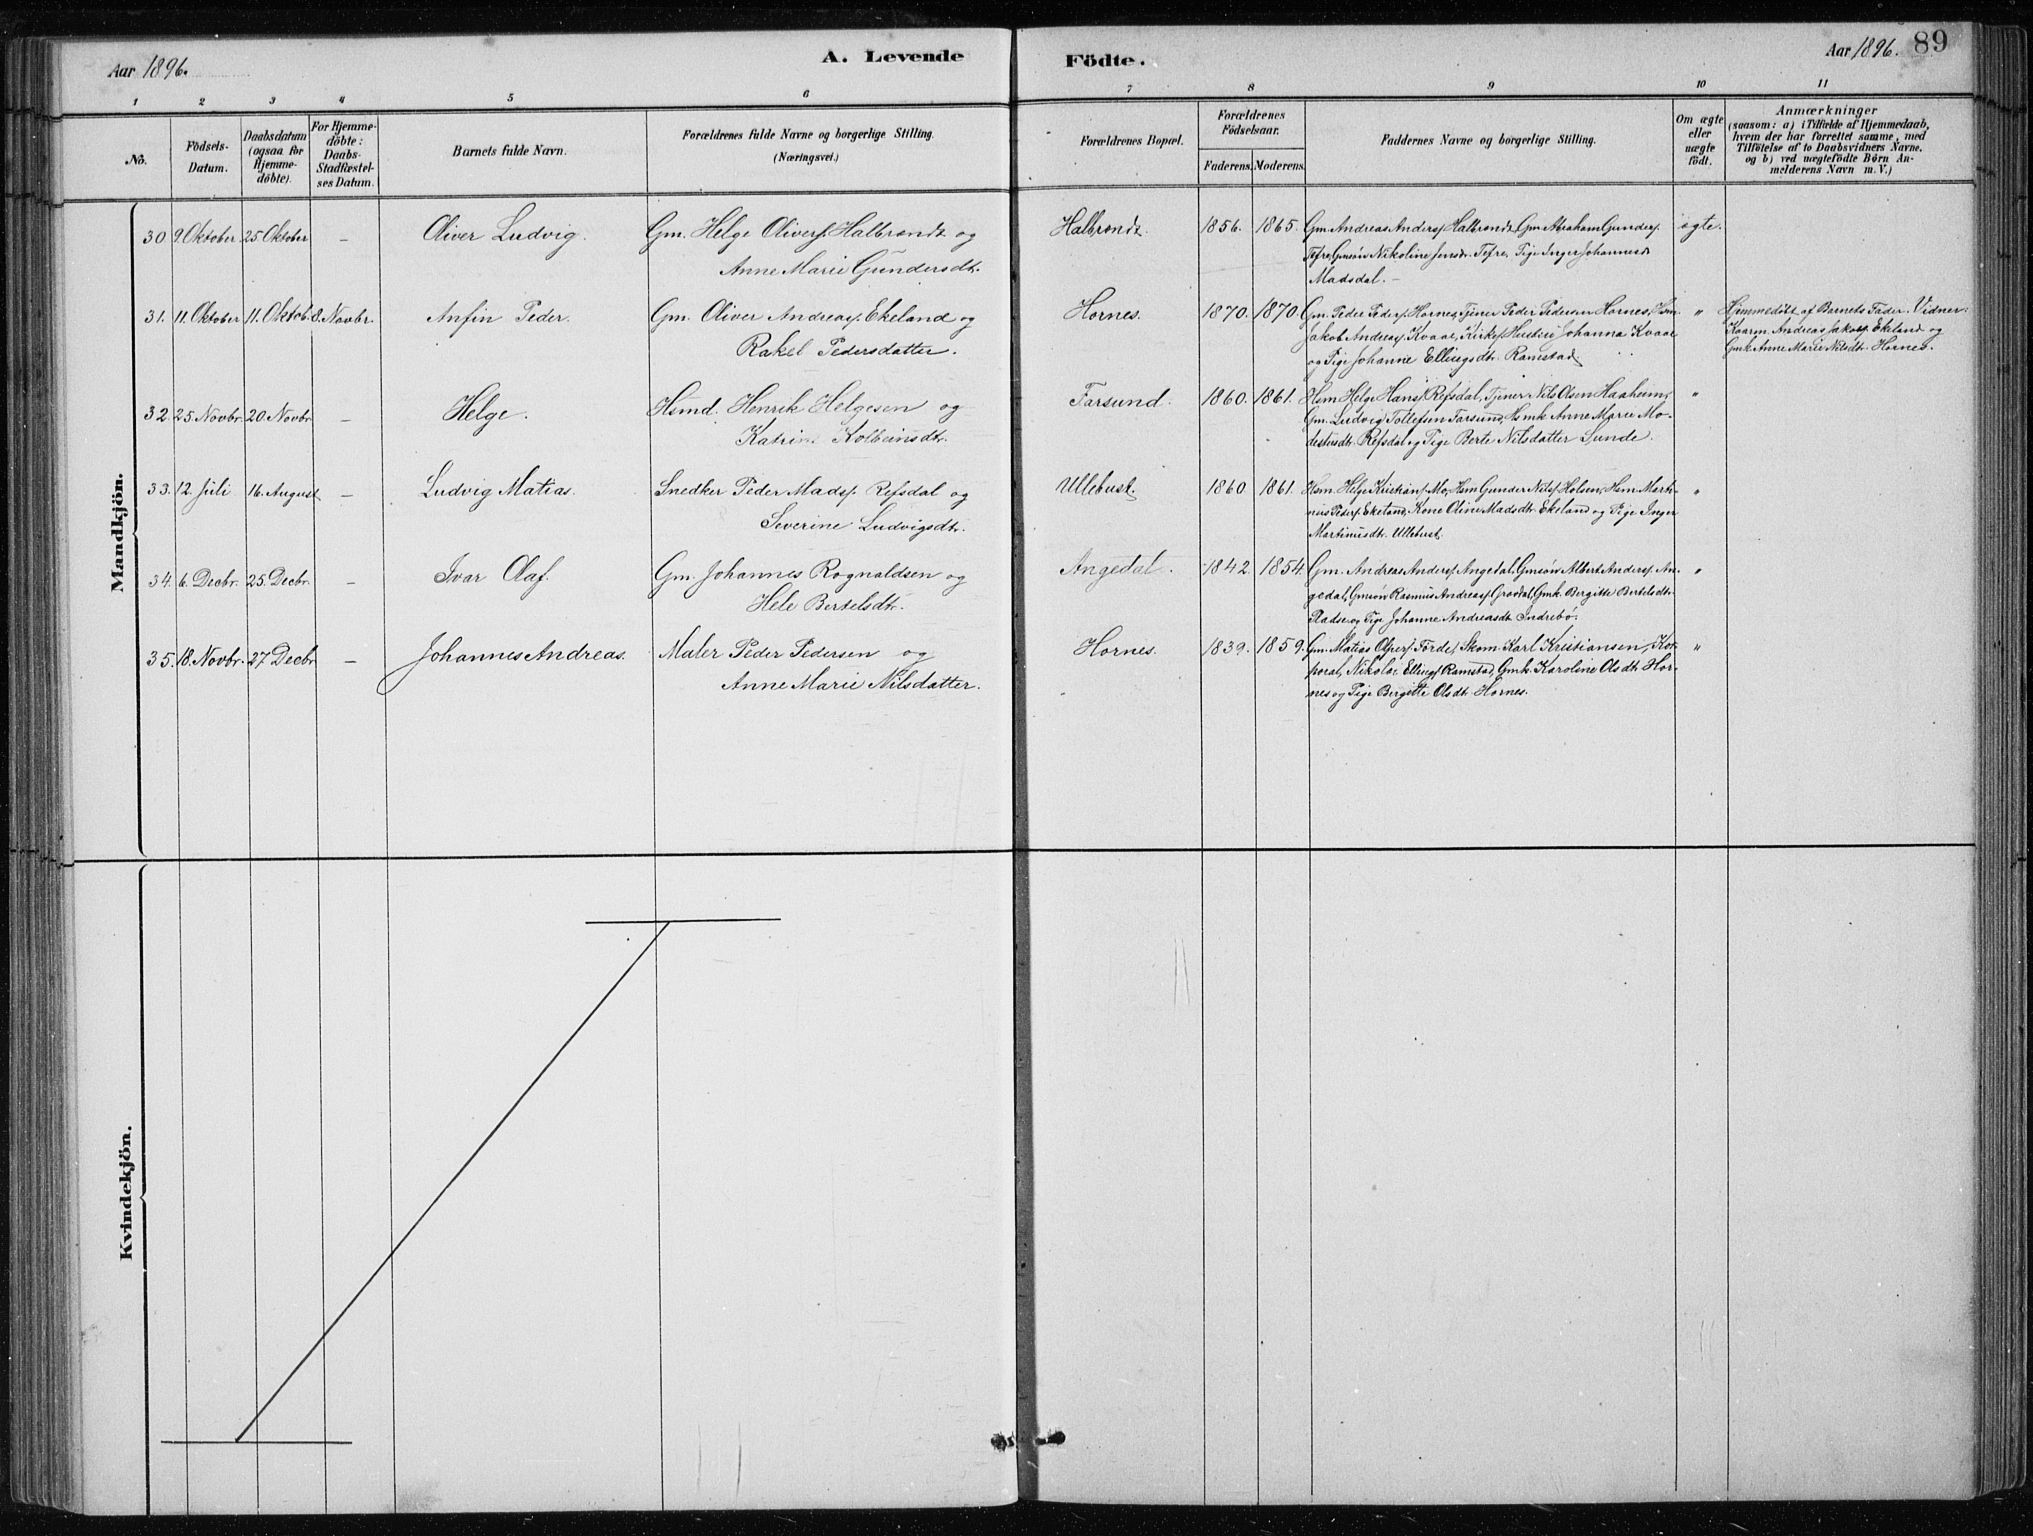 Aar 1896.
A. Levende
Födte.
Aar 1896.
89
1 2 3 4 5 6 7 8 9 10 11
No.
Födsels-
Datum.
Daabsdatum
(ogsaa for
Hjemme-
döbte).
For Hjemme-
döbte:
Daabs-
Stadfæstel-
ses Datum.
Barnets fulde Navn.
Forældrenes fulde Navne og borgerlige Stilling.
(Næringsvei.)
Forældrenes Bopæl.
Forældrenes
Födselsaar.
Faderens. Moderens.
Faddernes Navne og borgerlige Stilling.
Om ægte
eller
uægte
födt.
Anmærkninger
(saasom: a) i Tilfælde af Hjemmedaab,
hvem der har forrettet samme, med
Tilföielse af to Daabsvidners Navne,
og b) ved uægtefödte Börn An-
melderens Navn m. V.)
Mandkjön.
30. 9. Oktober. 25 Oktober — Oliver Ludvig. Gm. Helge Olivers. Halbrendt og
Anne Marie Gundersdt.
Halbrendt. 1856. 1865. Gm. Andreas Anders. Halbrendt, Gm Abraham Gunders.
Tefre, Gmsøn Nikoline Jensdr. Tefre, Pige Inger Johannesdt
Madsdal. —
ægte.
31. 11. Oktober 11. Oktob. 8. Novbr. Anfin Peder. Gm. Oliver Andreas. Ekeland og
Rakel Pedersdatter.
Hornes. 1870. 1870. Gm. Peder Peders. Hornes, Tjener Peder Pedersen Hornes, Hsm.
Jakob Andreas. Kvaae, Kirkes. Hustru Johanna Kvaae
og Pige Johanne Ellingsdt. Ramstad.
" Hjemmedöbt af Barnets Fader. Vidner:
Kaarm. Andreas Jakobs. Ekeland og
Gmk. Anne Marie Nilsdt. Hornes.
32. 25 Novbr. 20 Novbr — Helge. Hsmd. Henrik Helgesen og
Katrine Kolbeinsdt.
Farsund. 1860. 1861. Hsm. Helge Hans. Refsdal, Tjener Nils Olsen Haaheim,
Gm. Ludvig Tollefsen Farsund, Hsmk Anne Marie Mo-
destusdt. Refsdal og Pige Berte Nilsdatter Sunde.
"
33. 12. Juli 16. August — Ludvig Matias. Snedker Peder Mads. Refsdal og
Severine Ludvigsdt.
Ullebust. 1860. 1861. Hsm. Helge Kristians. Mo, Hsm Gunder Nils. Holsen, Hsm. Marti-
nus Peders. Ekeland, Kone Oline Madsdt. Ekeland og Pige Inger
Martinusdt. Ullebust.
"
34. 6. Decbr. 25 Decbr. — Ivar Olaf. Gm. Johannes Rognaldsen og
Hele Bertelsdt.
Angedal. 1842. 1854. Gm. Andreas Anders. Angedal, Gmsøn Albert Anders. An-
gedal, Gmsøn Rasmus Andreas. Grovdal, Gmk. Bergitte Bertelsdt.
Pladse og Pige Johanne Andreasdt. Indrebø.
"
35. 18. Novbr. 27 Decbr — Johannes Andreas. Maler Peder Pedersen og
Anne Marie Nilsdatter.
Hornes. 1839. 1859. Gm. Matias Olpers. Förde, Skom. Karl Kristiansen, Kor-
poral Nikolai Ellings. Ramstad, Gmk. Karoline Olsdt. Hor-
nes og Pige Bergitte Olsdt. Hornes.
"
Kvindekjön.